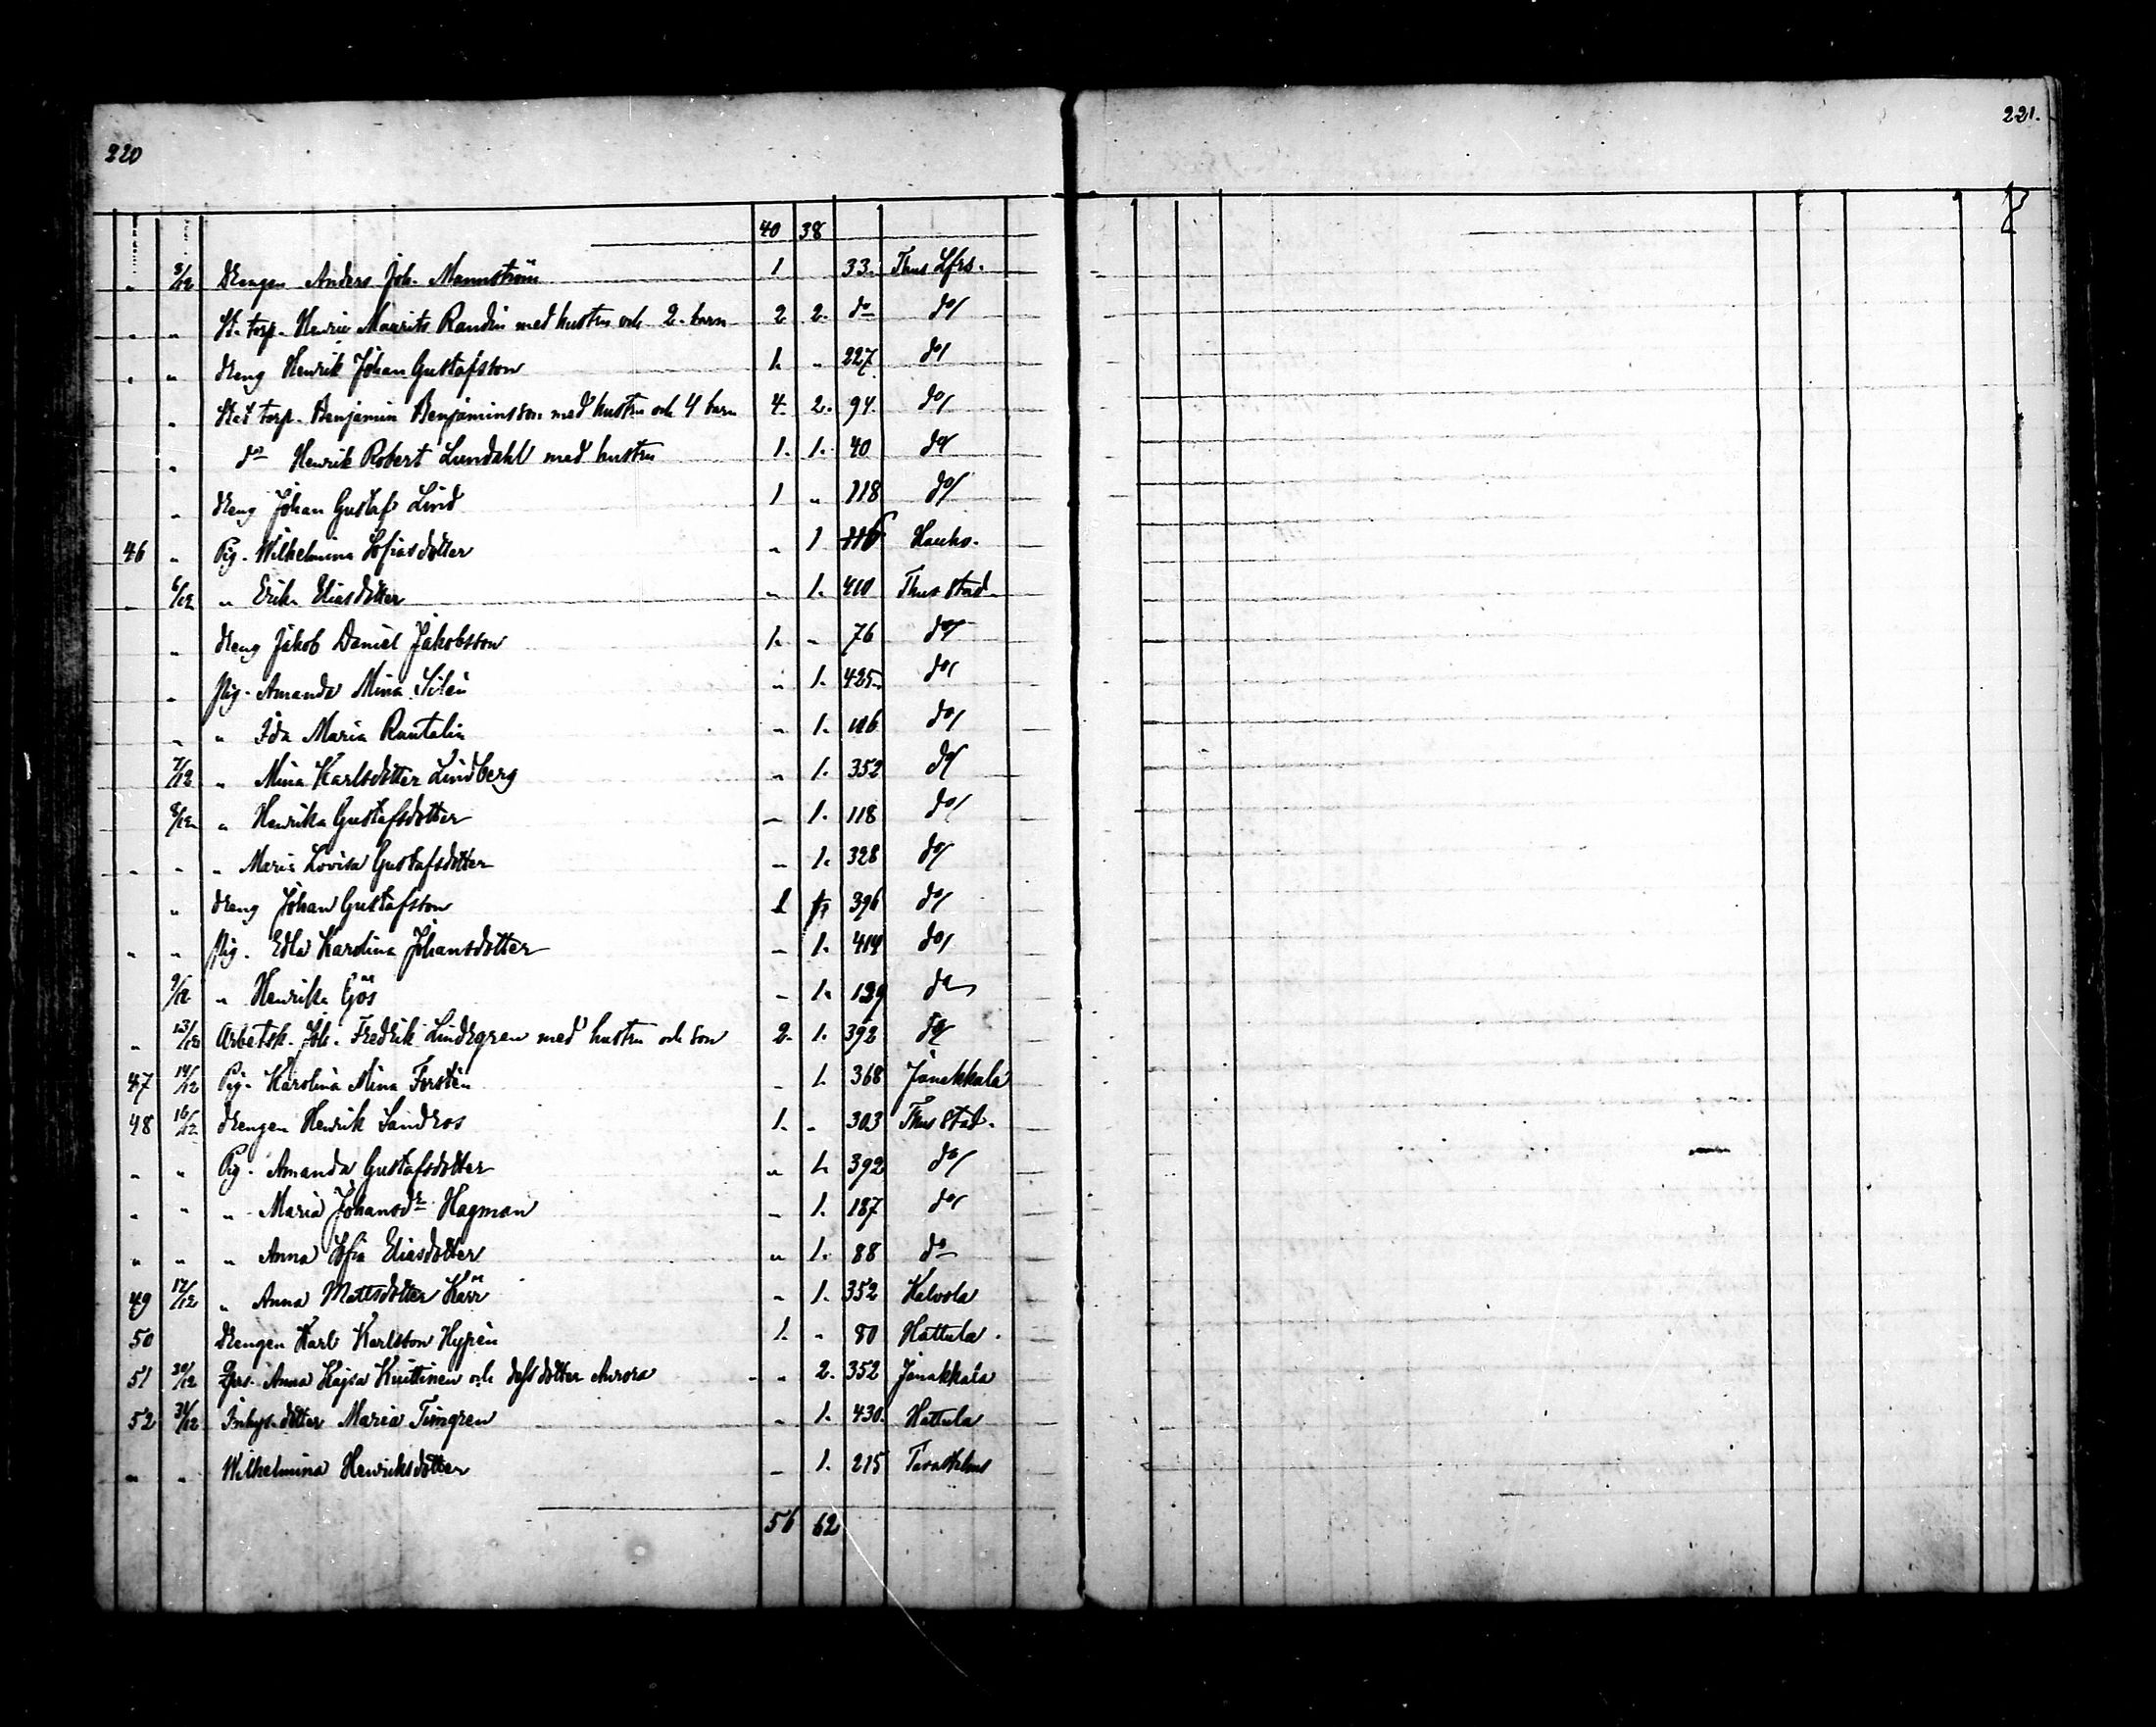 220
221.
40 38
" 3/12 Drengen Anders Joh. Mannström 1 33. Thus Lfrs.
" " St. torp. Henric Maurits Randin med hustru och 2. barn 2 2. do do/
" " dreng Henrik Johan Gustafsson 1. " 227 do/
" Stat torp. Benjamin Benjaminsson med hustru och 4 barn 4. 2. 94. do/
" do Henrik Robert Lundahl med hustru 1. 1. 40 do/
" dreng Johan Gustaf Lind 1 " 118 do/
46 " Pig. Wilhelmina Sofiasdotter " 1 116 Hauho.
" 6/12 " Erika Eliasdotter " 1. 410 Thus Stad
" dreng Jakob Daniel Jakobsson 1. " 76 do/
" Pig. Amanda Mina Silén " 1. 425 do/
" " Ida Maria Rantalin " 1. 106 do/
7/12 " Mina Karlsdotter Lindberg " 1. 352 do/
8/12 " Henrika Gustafsdotter " 1. 118 do/
" " " Maria Lovisa Gustafsdotter " 1. 328 do/
" dreng Johan Gustafsson 1 396 do/
" " Pig. Edla Karolina Johansdotter " 1. 414 do/
9/12 " Henrika Gös " 1. 139 do
" 13/12 Arbetsk. Joh. Fredrik Lindegren med hustru och son 2. 1. 392 do/
47 14/12 Pig. Karolina Mina Forstén " 1. 368 Janakkala
48 16/12 Drengen Henrik Sandros 1. " 303 Thus Stad.
" " Pig. Amanda Gustafsdotter " 1. 392 do/
" " " Maria Johansdr Hagman " 1. 187 do/
" " " Anna Sofia Eliasdotter " 1. 88 do
49 17/12 " Anna Mattsdotter Kärr " 1. 352 Kalvola
50 Drengen Karl Karlsson Hyrén 1. " 80 Hattula.
51 30/12 Anna Kajsa Knuttinen och dess dotter Aurora " 2. 352 Janakkala
52 31/12 Inhys. dotter Maria Timgren " 1. 430. Hattula
" " Wilhelmina Henriksdotter " 1. 215 Tavastehus
56 62